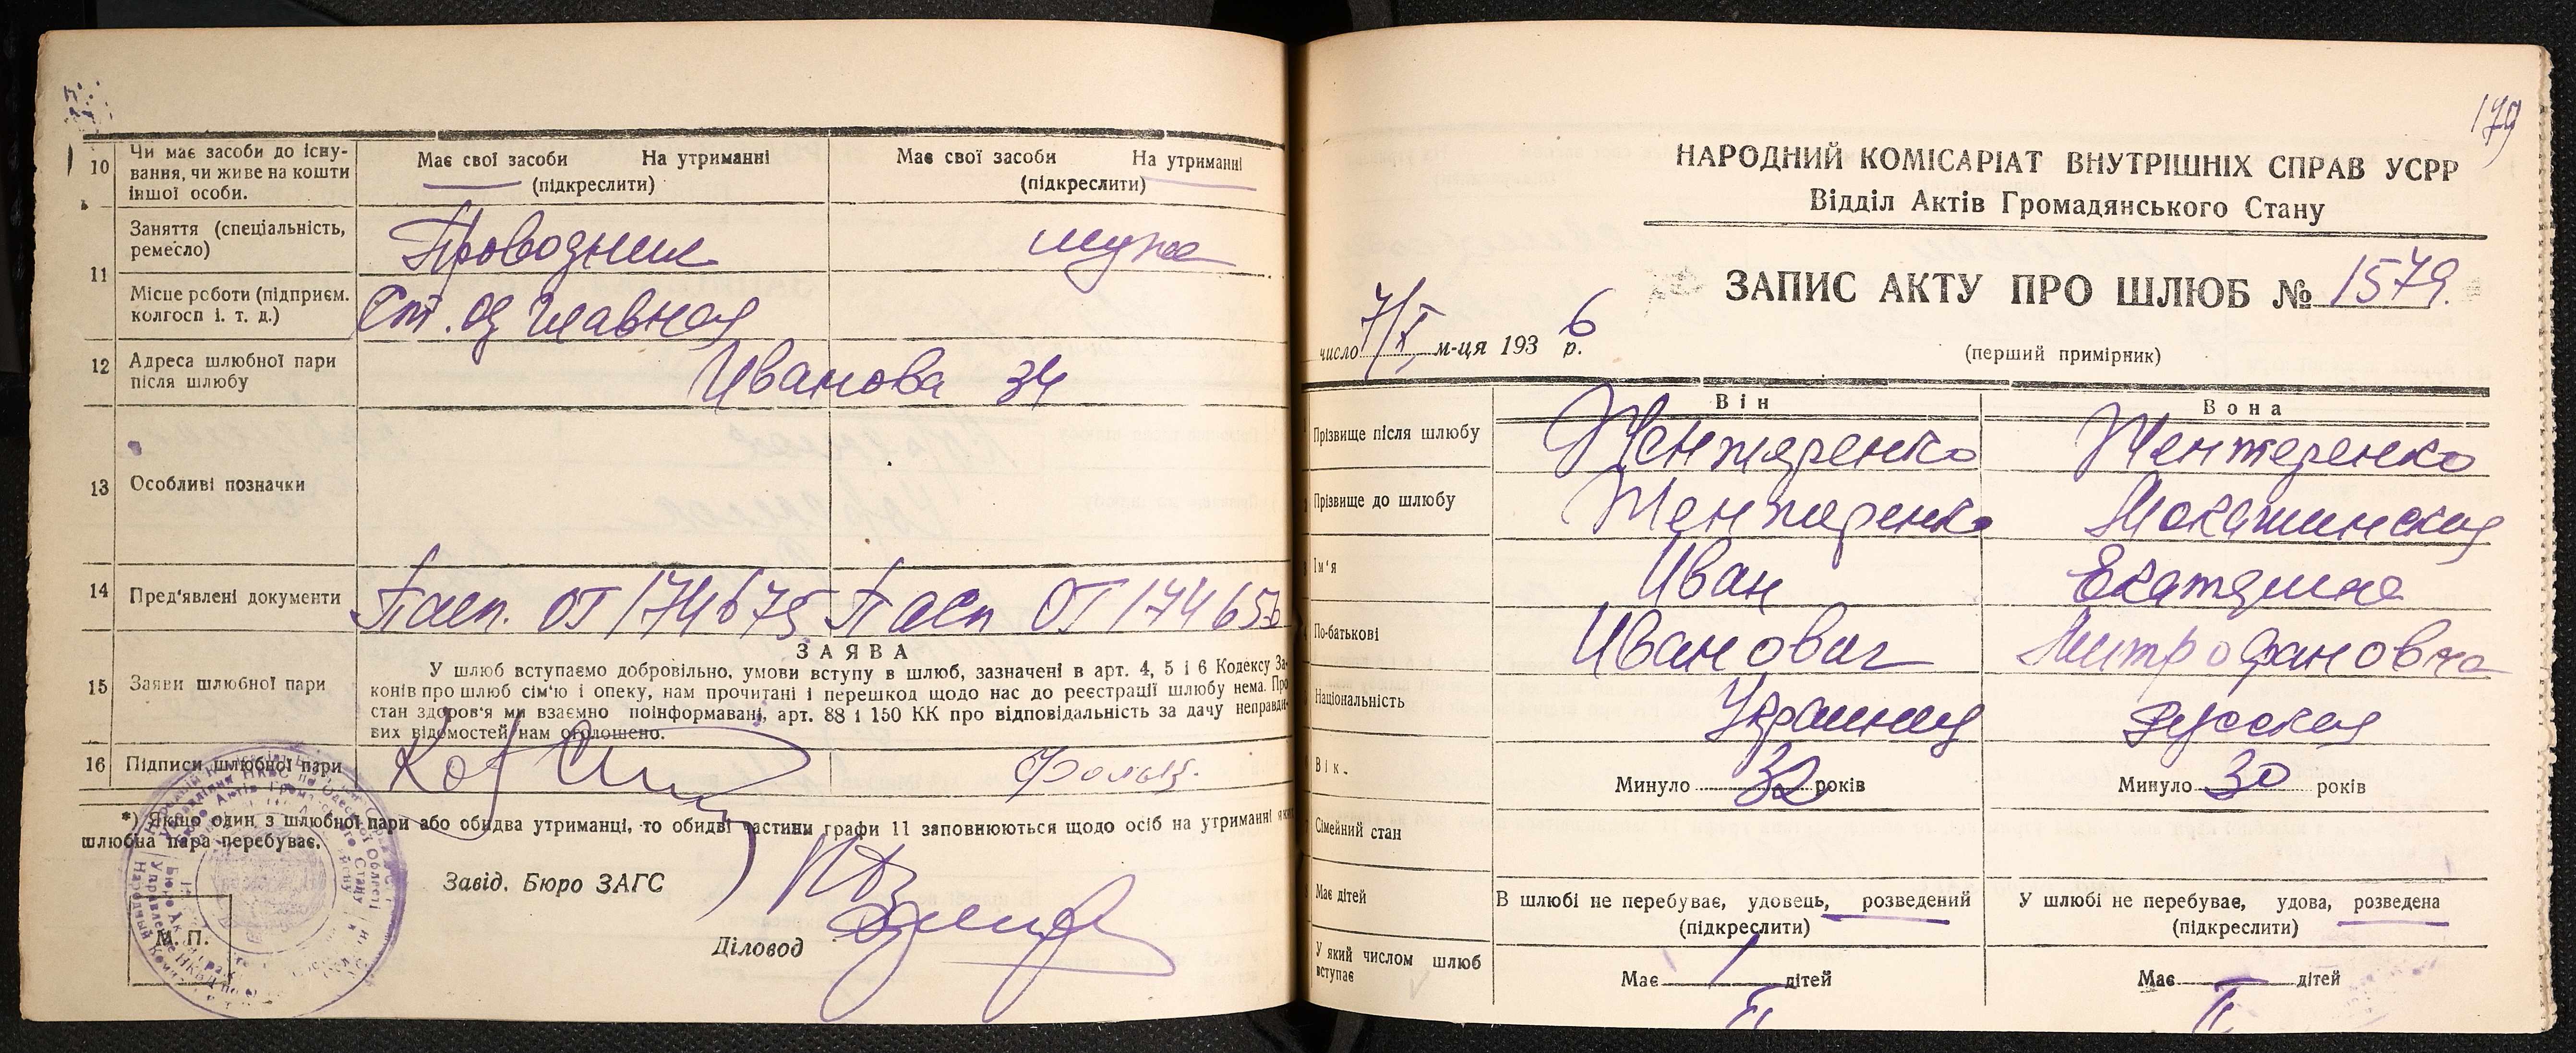 10 Чи має засоби до існу-
вання, чи живе на кошти
іншої особи.
Має свої засоби На утриманні
(підкреслити)
Має свої засоби На утриманні
(підкреслити)
11 Заняття (спеціальність,
ремесло)
Проводник
мужа
Місце роботи (підприєм.
колгосп і. т. д.)
Ст. Од Главная
12 Адреса шлюбної пари
після шлюбу
Иванова 34
13 Особливі позначки
14 Пред'явлені документи
Пасп. ОТ 174675
Пасп ОТ 174656
ЗАЯВА
15 Заяви шлюбної пари
У шлюб вступаємо добровільно, умови вступу в шлюб, зазначені в арт. 4, 5 і 6 Кодексу За-
конів про шлюб сім'ю і опеку, нам прочитані і перешкод щодо нас до реєстрації шлюбу нема. Про
стан здоров'я ми взаємно поінформавані, арт. 88 і 150 КК про відповідальність за дачу неправди-
вих відомостей нам оголошено.
16 Підписи шлюбної пари
*) Якщо один з шлюбної пари або обидва утриманці, то обидві частини графи 11 заповнюються щодо осіб на утриманні яких
шлюбна пара перебуває.
Завід. Бюро ЗАГС
Діловод
М. П.
179
НАРОДНИЙ КОМІСАРІАТ ВНУТРІШНІХ СПРАВ УСРР
Відділ Актів Громадянського Стану
ЗАПИС АКТУ ПРО ШЛЮБ № 1579.
число 7/X м-ця 1936 р.
(перший примірник)
Він
Вона
Прізвище після шлюбу
Прізвище до шлюбу
Ім'я
Иван
Екатерина
По-батькові
Иванович
Митрофановна
Національність
Украинец
Русская
Вік.
Минуло 32 років
Минуло 30 років
Сімейний стан
Має дітей
В шлюбі не перебуває, удовець, розведений
(підкреслити)
У шлюбі не перебуває, удова, розведена
(підкреслити)
У який числом шлюб
вступає
Має дітей
Має — дітей
II
II